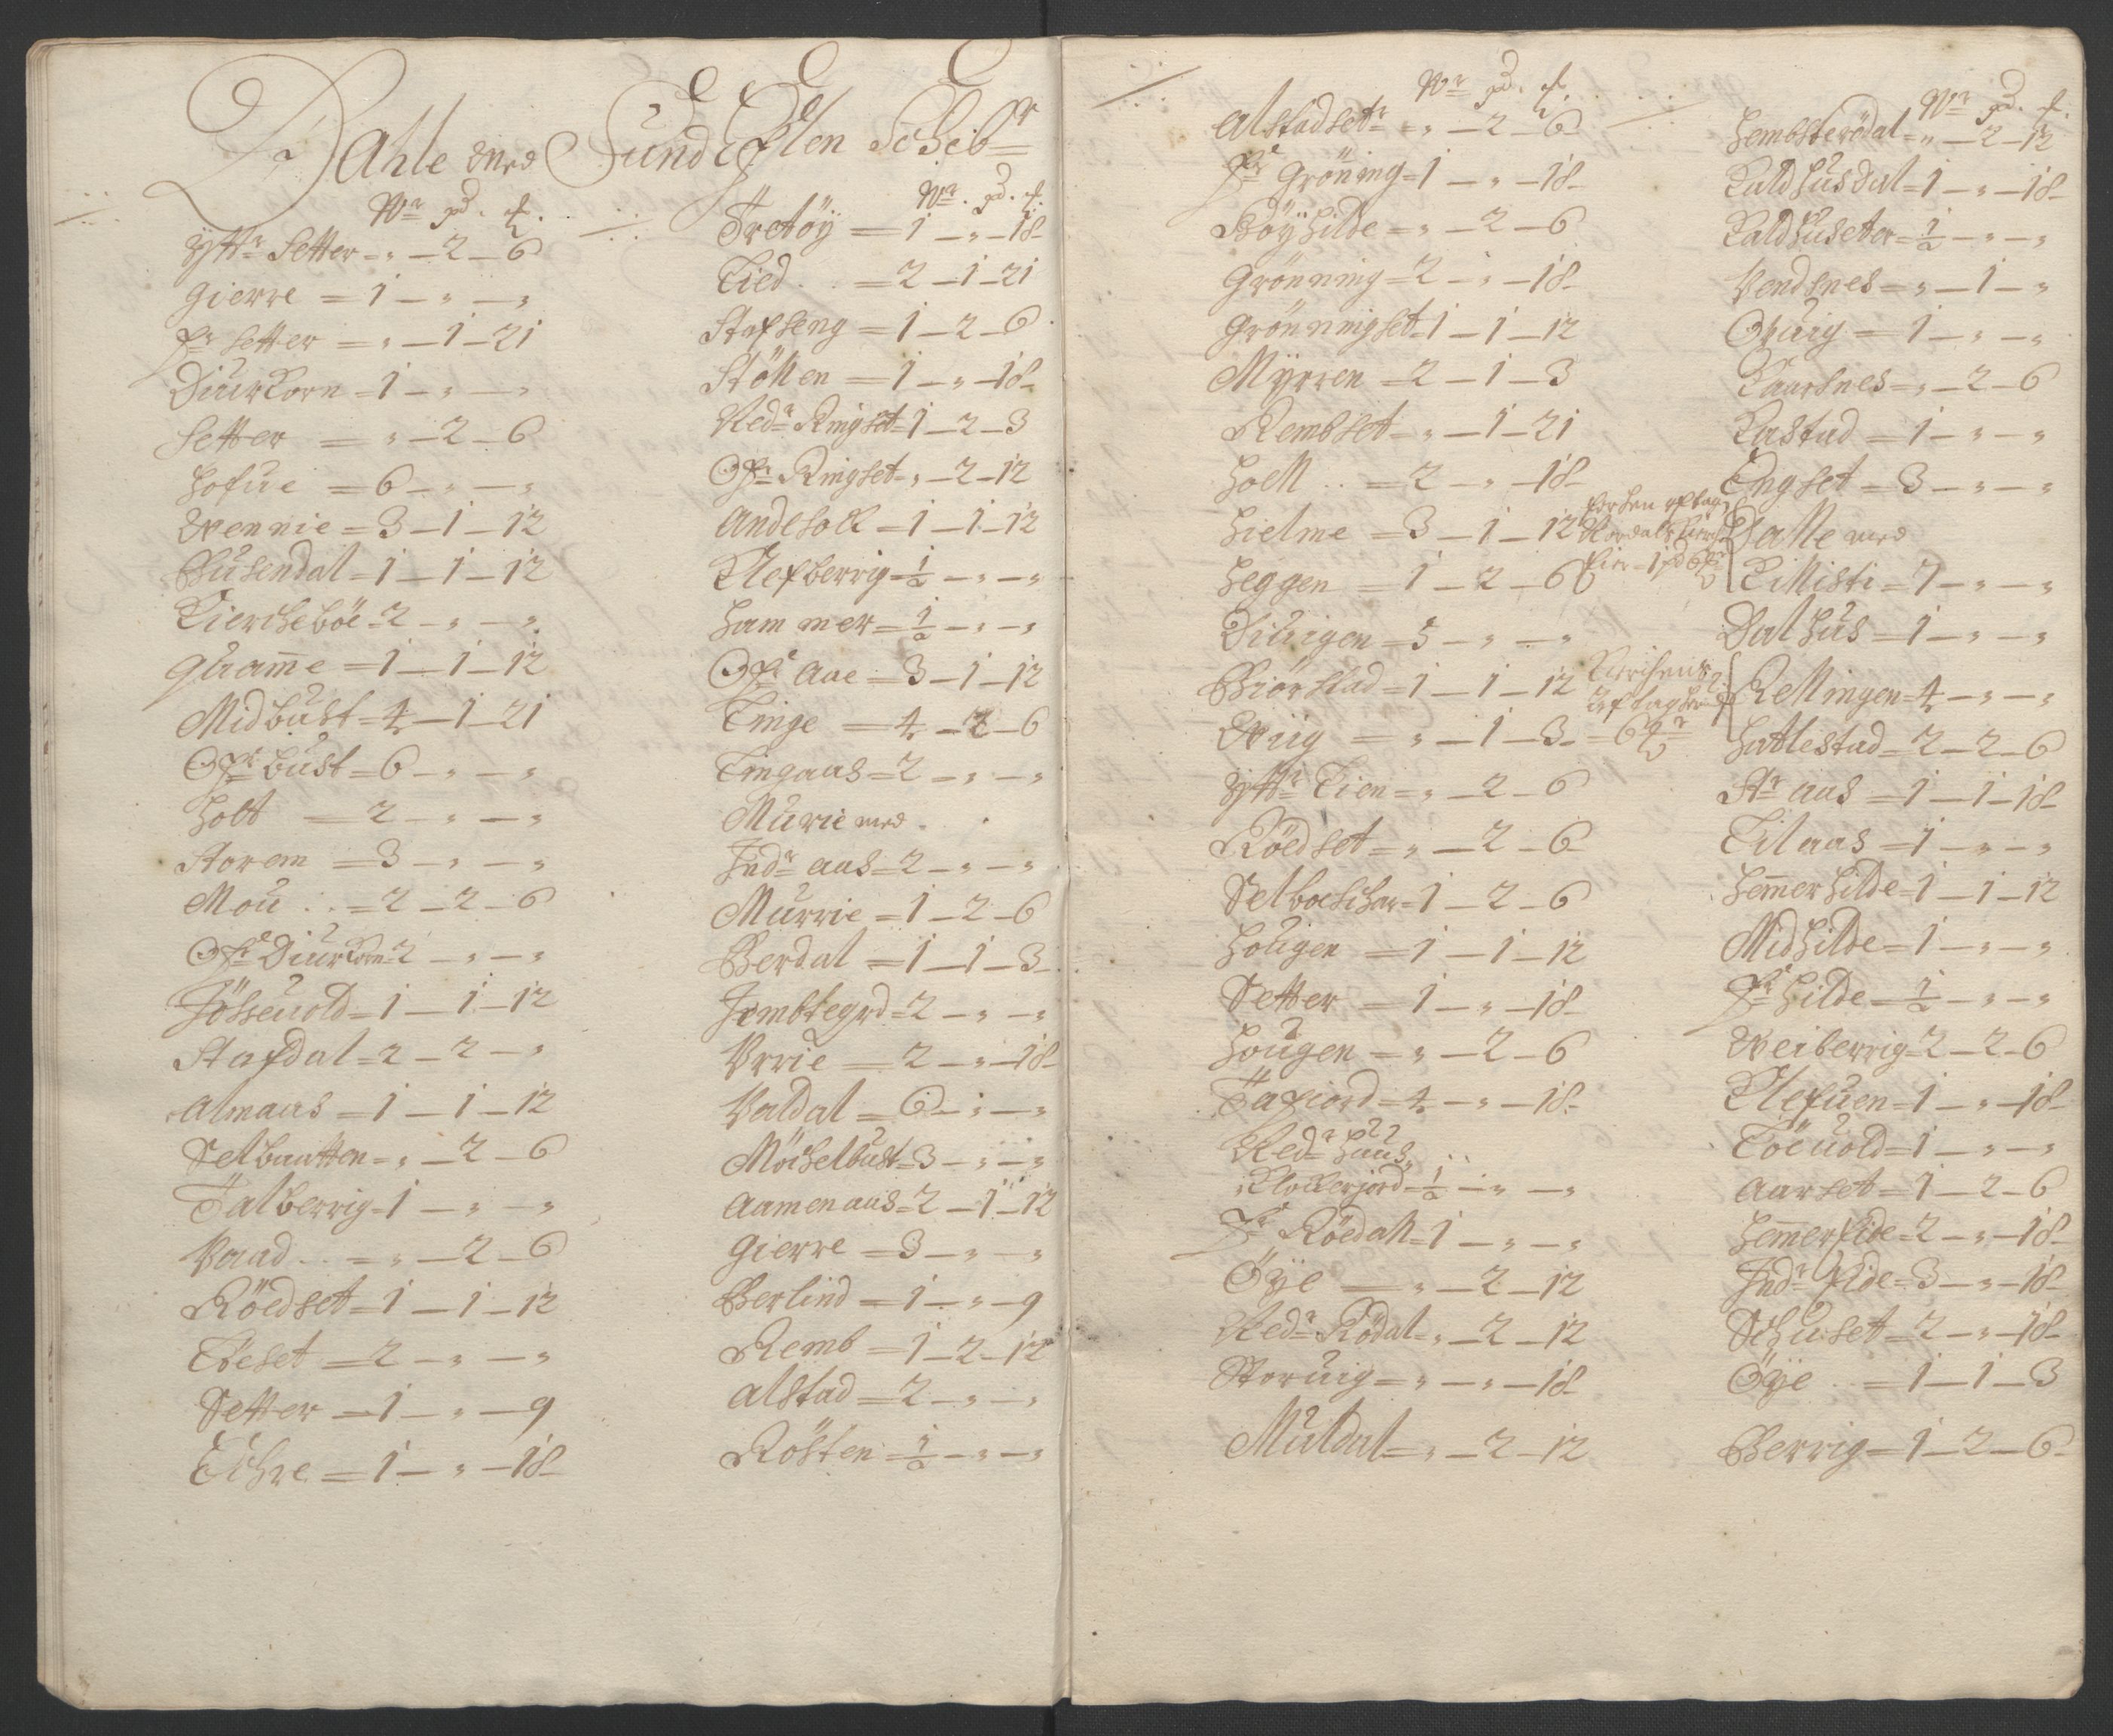 Dahle med Sund Eflen Schibr
Wr pd. ℔.
Yttr Setter = " — 2 — 6
Gierre = 1 — " — "
fr Setter = " — 1 — 21
Diurkorn = 1 — " — "
Setter = " — 2 — 6
Hofue = 6 — " — "
Wennie = 3 — 1 — 12
Busendal = 1 — 1 — 12
Kiercheböe = 2 — " — "
Quam̄e = 1 — 1 — 12
Midbust = 4 — 1 — 21
Ofr bust = 6 — " — "
Holt = 2 — " — "
Storem = 3 — " — "
Mou .. = 2 — 2 — 6
Ofr Diurkorn = 2 — " — "
Jösseuold = 1 — 1 — 12
Stafdal = 2 — 2 — "
Almaas = 1 — 1 — 12
Selbautten = " — 2 — 6
Falberrig = 1 — " — "
Vaad .. = " — 2 — 6
Röedset = 1 — 1 — 12
Töeset = 2 — " — "
Setter = 1 — " — 9
Echre = 1 — " — 18
Wr. pd. ℔.
Fretöy = 1 — " — 18
Lied .. = 2 — 1 — 21
Stafseng = 1 — 2 — 6
Stöllen = 1 — " — 18
Nedr Ringset = 1 — 2 — 3
Ofr Ringset = " — 2 — 12
Andesolk = 1 — 1 — 12
Klefberrig = ½ — " — "
Hammer = ½ — " — "
Ofr Aae = 3 — 1 — 12
Linge = 4 — 2 — 6
Lingaas = 2 — " — "
Murie med
Indr aas = 2 — " — "
Murrie = 1 — 2 — 6
Berdal = 1 — 1 — 3
Jemblegrd = 2 — " — "
Vrrie = 2 — " — 18
Valdal = 6 — " — "
Möchelbust = 3 — " — "
Aamenaas = 2 — 1 — 12
Gierre = 3 — " — "
Berlind = 1 — " — 9
Remb = 1 — 2 — 12
Alstad = 2 — " — "
Rösten = ½ — " — "
Wr pd. ℔.
Alstadsetr = " — 2 — 6
fr Gröning = 1 — " — 18
Höyhilde = " — 2 — 6
Grönning = 2 — " — 18
Grönningset = 1 — 1 — 12
Myrren = 2 — 1 — 3
Rembset = " — 1 — 21
Holl .. = 2 — " — 18
Hielme = 3 — 1 — 12
Heggen = 1 — 2 — 6
Diuigen = 5 — " — "
Biörstad = 1 — 1 — 12
Wiig = " — 1 — 3
Yttr Lien = " — 2 — 6
Röedset = " — 2 — 6
Selboeschar = 1 — 2 — 6
Hougen = 1 — 1 — 12
Setter = 1 — " — 18
Hougen = " — 2 — 6
Tafiord = 4 — " — 18
Nedr Huus
Klockerjord = ½ — " — "
fr Röedall = 1 — " — "
Öye = " — 2 — 12
Nedr Rödal = " — 2 — 12
Storuig = " — " — 18
Muldal = " — 2 — 12
Wr pd. ℔.
Hembsterödal = " — 2 — 12
Kaldhusdal = 1 — " — 18
Kaldhuseter = ½ — " — "
Vendsnes = " — 1 — "
Ouig = 1 — " — "
Kaarsnes = " — 2 — 6
Rastad = 1 — " — "
Engset = 3 — " — "
Dalle med
Killisti = 7 — " — "
Dalhus = 1 — " — "
Rellingen = 4 — " — "
= 6 ℔r
Hattlestad = 2 — 2 — 6
Str Aas = 1 — 1 — 18
Lilaas = 1 — " — "
Hem̄erhilde = 1 — 1 — 12
Midhilde = 1 — " — "
fr Hilde = ½ — " — "
Weiberrig = 2 — 2 — 6
Klefuen = 1 — " — 18
Löeuold = 1 — " — "
Aarset = 1 — 2 — 6
Hem̄erlide = 2 — " — 18
Indr Eide = 3 — " — 18
Schuset = 2 — " — 18
Öye .. = 1 — 1 — 3
Berrig = 1 — 2 — 6